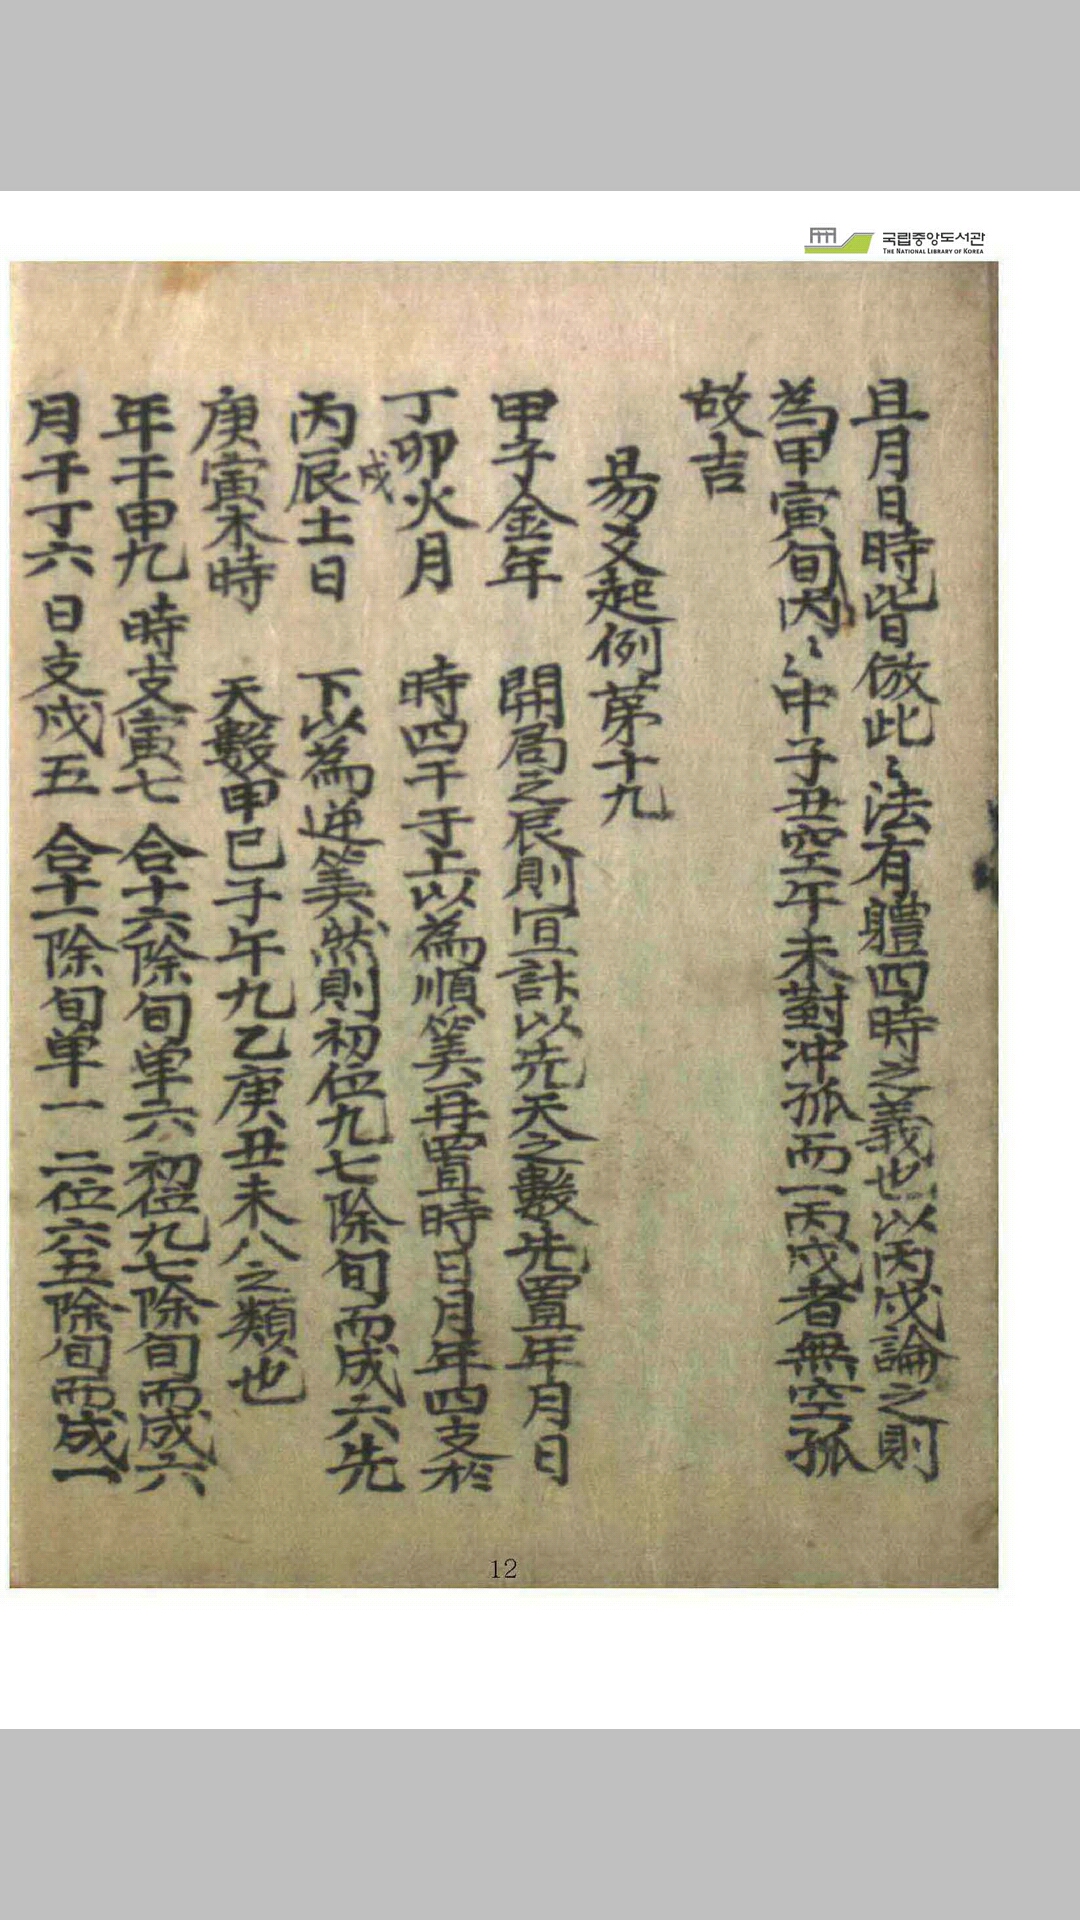 국립중앙도서관
THE NATIONAL LIBRARY OF KOREA
且月日時皆倣此〻法有軆四時之義也以丙戌論之則
為甲寅旬內〻〻中子丑空午未對冲孤而一丙戌者無空孤
故吉
易爻起例第十九
甲子金年 開局之辰則宜計以先天之數先置年月日
丁卯火月 時四干于上以為順筭再置時日月年四支於
戌
丙辰土日 下以為逆筭然則初位九七除旬而成六先
庚寅木時 天數甲己子午九乙庚丑未八之類也
年干甲九 時支寅七 合十六除旬単六 初位九七除旬而成六
月干丁六 日支戌五 合十一除旬単一 二位六五除旬而成一
12